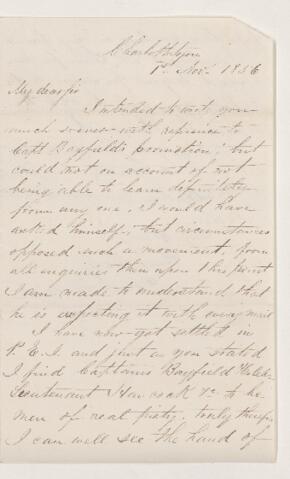 Charlottetown
1st Nov. 1856
My dear Sir
I intended to write you
much sooner with reference to
Capt Bayfield's promotion; but
could not on account of not
being able to learn definitely
from any one. I would have
asked himself, but circumstances
opposed such a movement, from
all inquiries then upon this point
I am made to understand that
he is expecting it with every mail
I have now got settled in
P. E. I. and just as you stated
I find Captains Bayfield
Lieutenant Hancock &c to be
men of real piety. truly therefore
I can well see the hand of